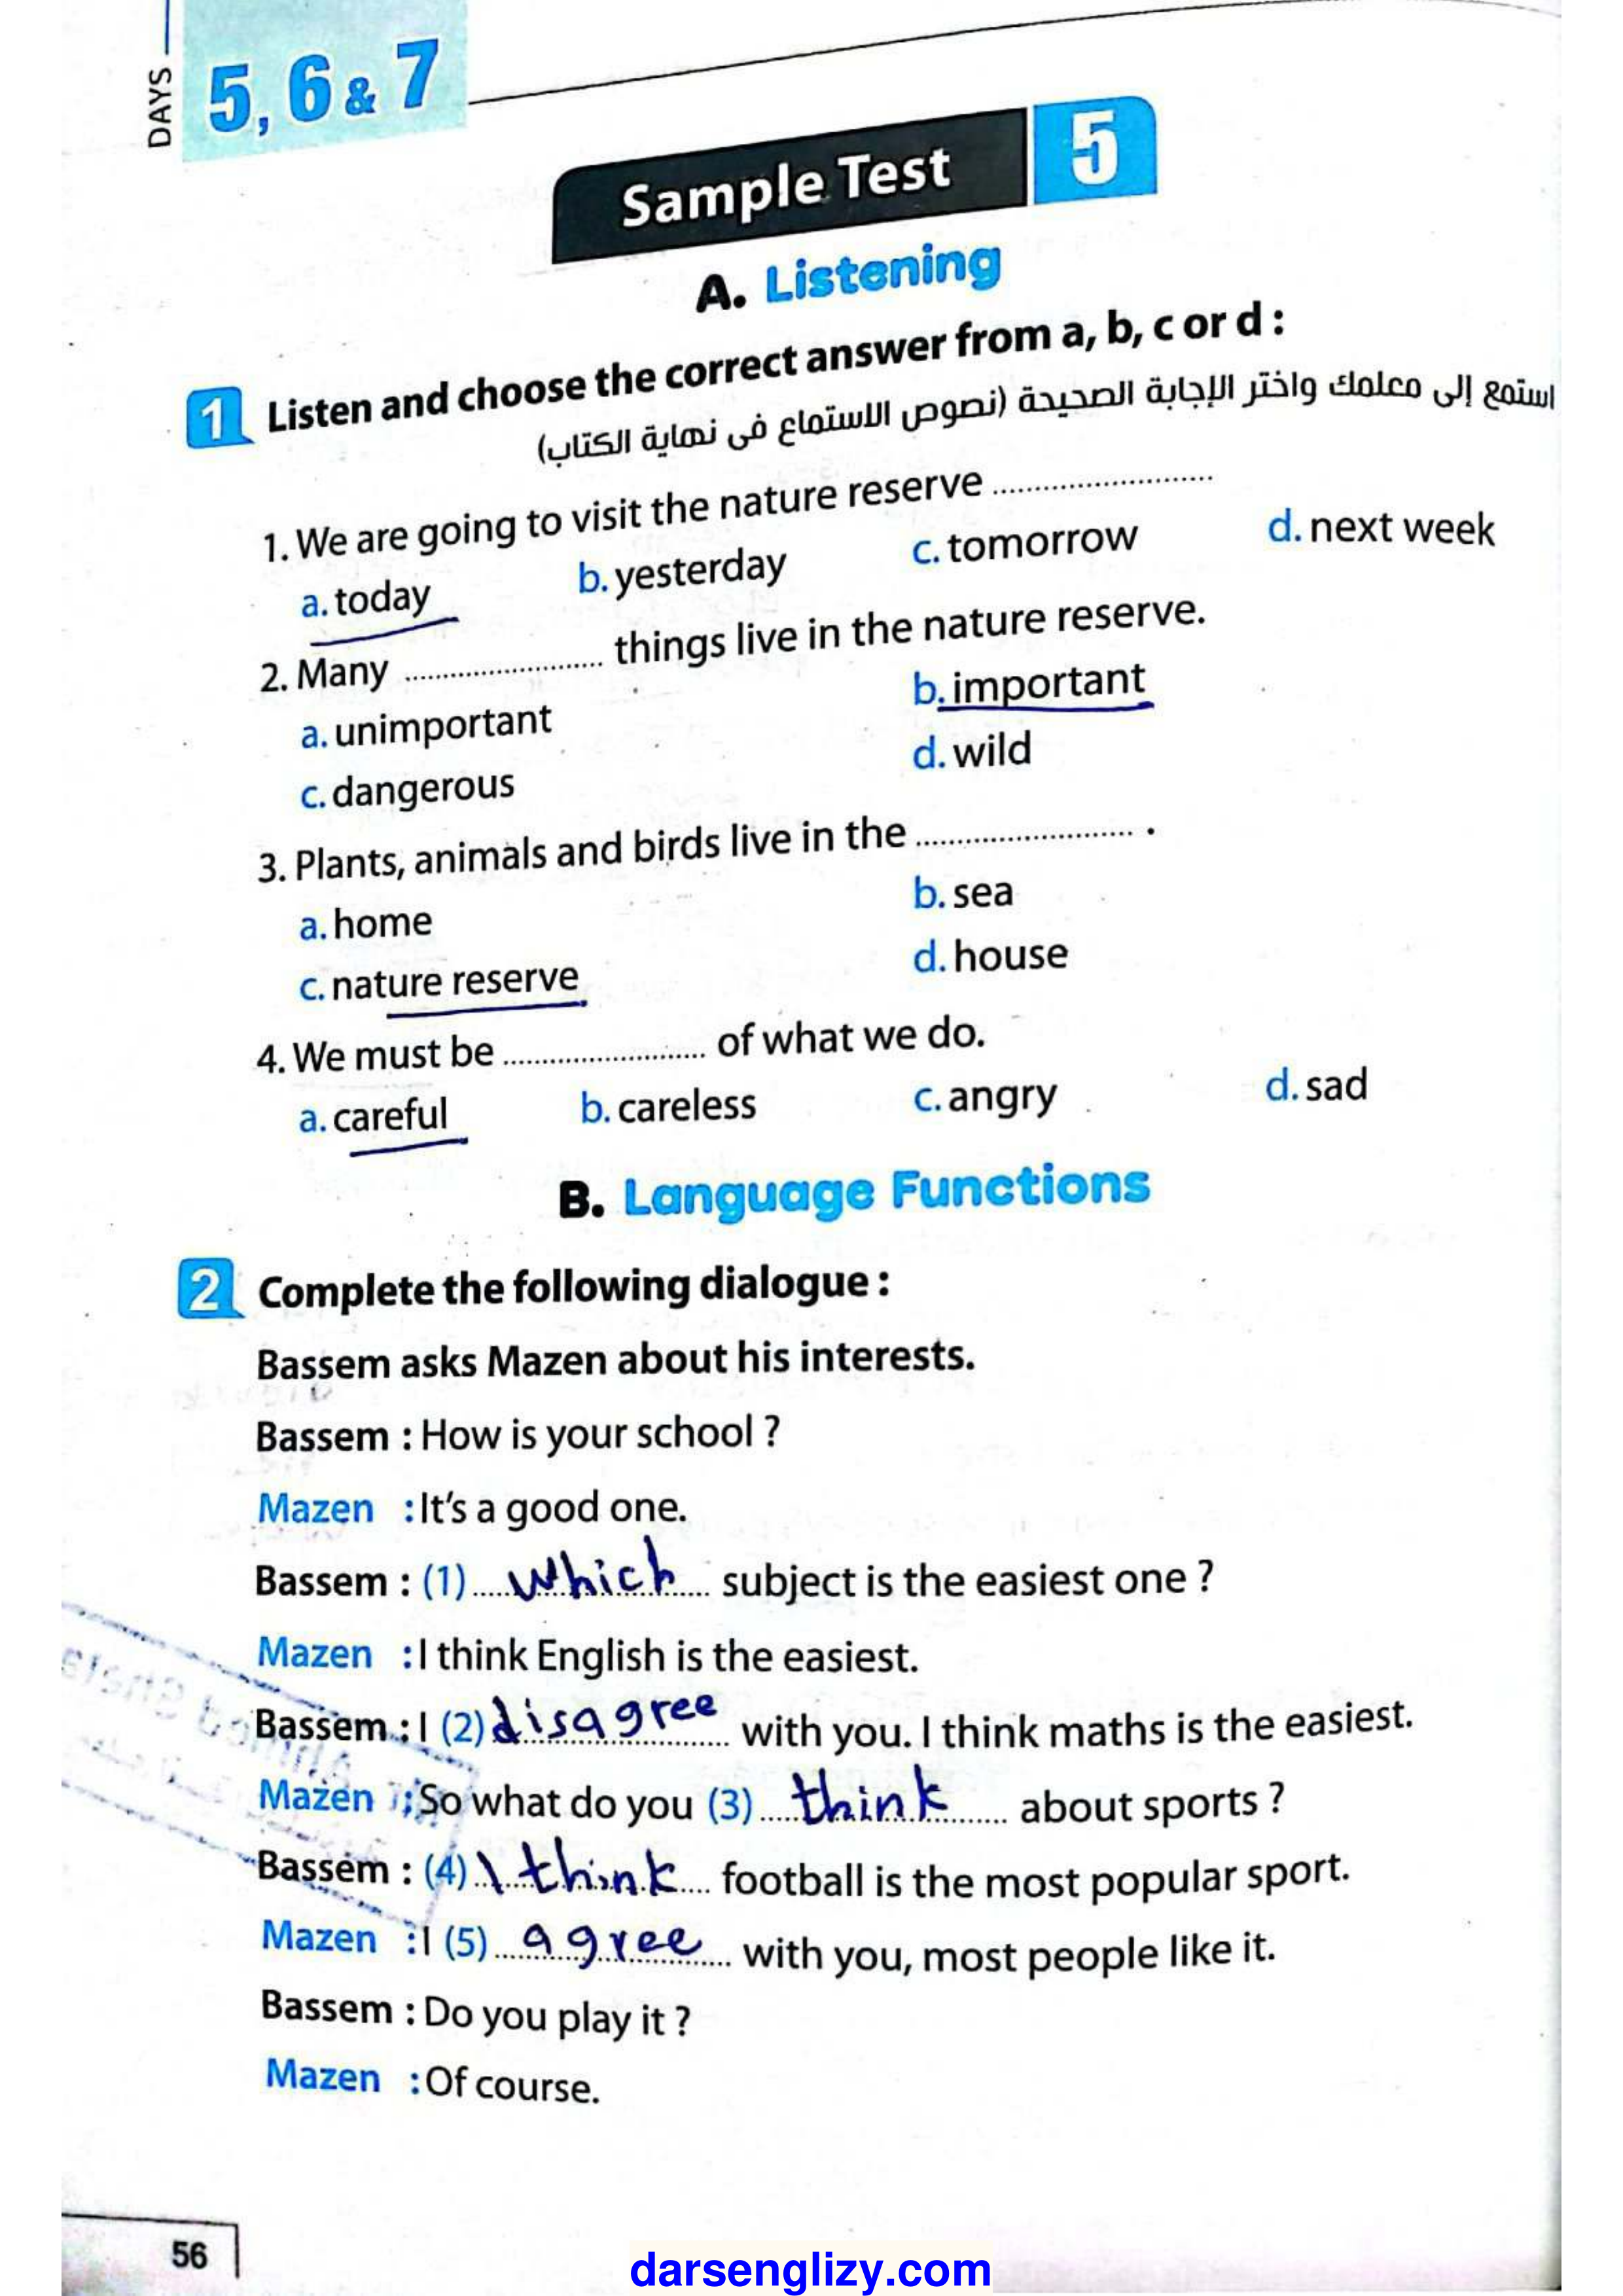 DAYS
5, 6 & 7
Sample Test 5
A. Listening
1 Listen and choose the correct answer from a, b, c or d :
استمع إلى معلمك واختر الإجابة الصحيحة (نصوص الاستماع فى نهاية الكتاب)
1. We are going to visit the nature reserve ........................
a. today b. yesterday c. tomorrow d. next week
2. Many ........................ things live in the nature reserve.
a. unimportant b. important
c. dangerous d. wild
3. Plants, animals and birds live in the ........................ .
a. home b. sea
c. nature reserve d. house
4. We must be ........................ of what we do.
a. careful b. careless c. angry d. sad
B. Language Functions
2 Complete the following dialogue :
Bassem asks Mazen about his interests.
Bassem : How is your school ?
Mazen : It's a good one.
Bassem : (1) which subject is the easiest one ?
Mazen : I think English is the easiest.
Bassem : I (2) disagree with you. I think maths is the easiest.
Mazen : So what do you (3) think about sports ?
Bassem : (4) I think football is the most popular sport.
Mazen : I (5) agree with you, most people like it.
Bassem : Do you play it ?
Mazen : Of course.
56
darsenglizy.com